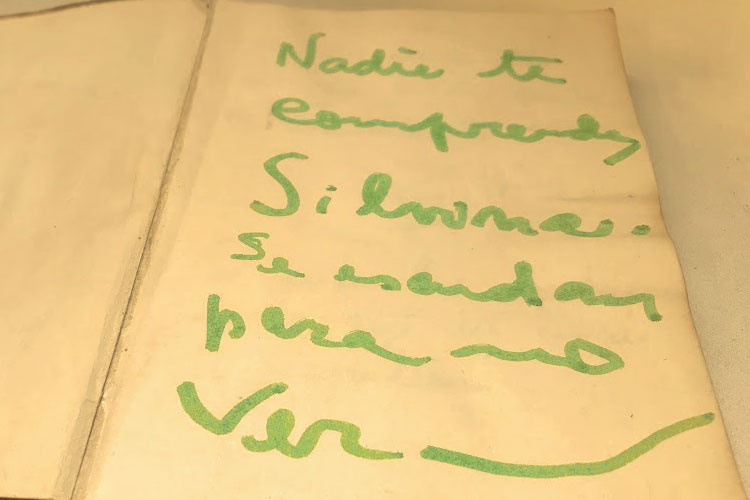 Nadie te
comprende,
Silvina.
Se escudan
para no
Ver